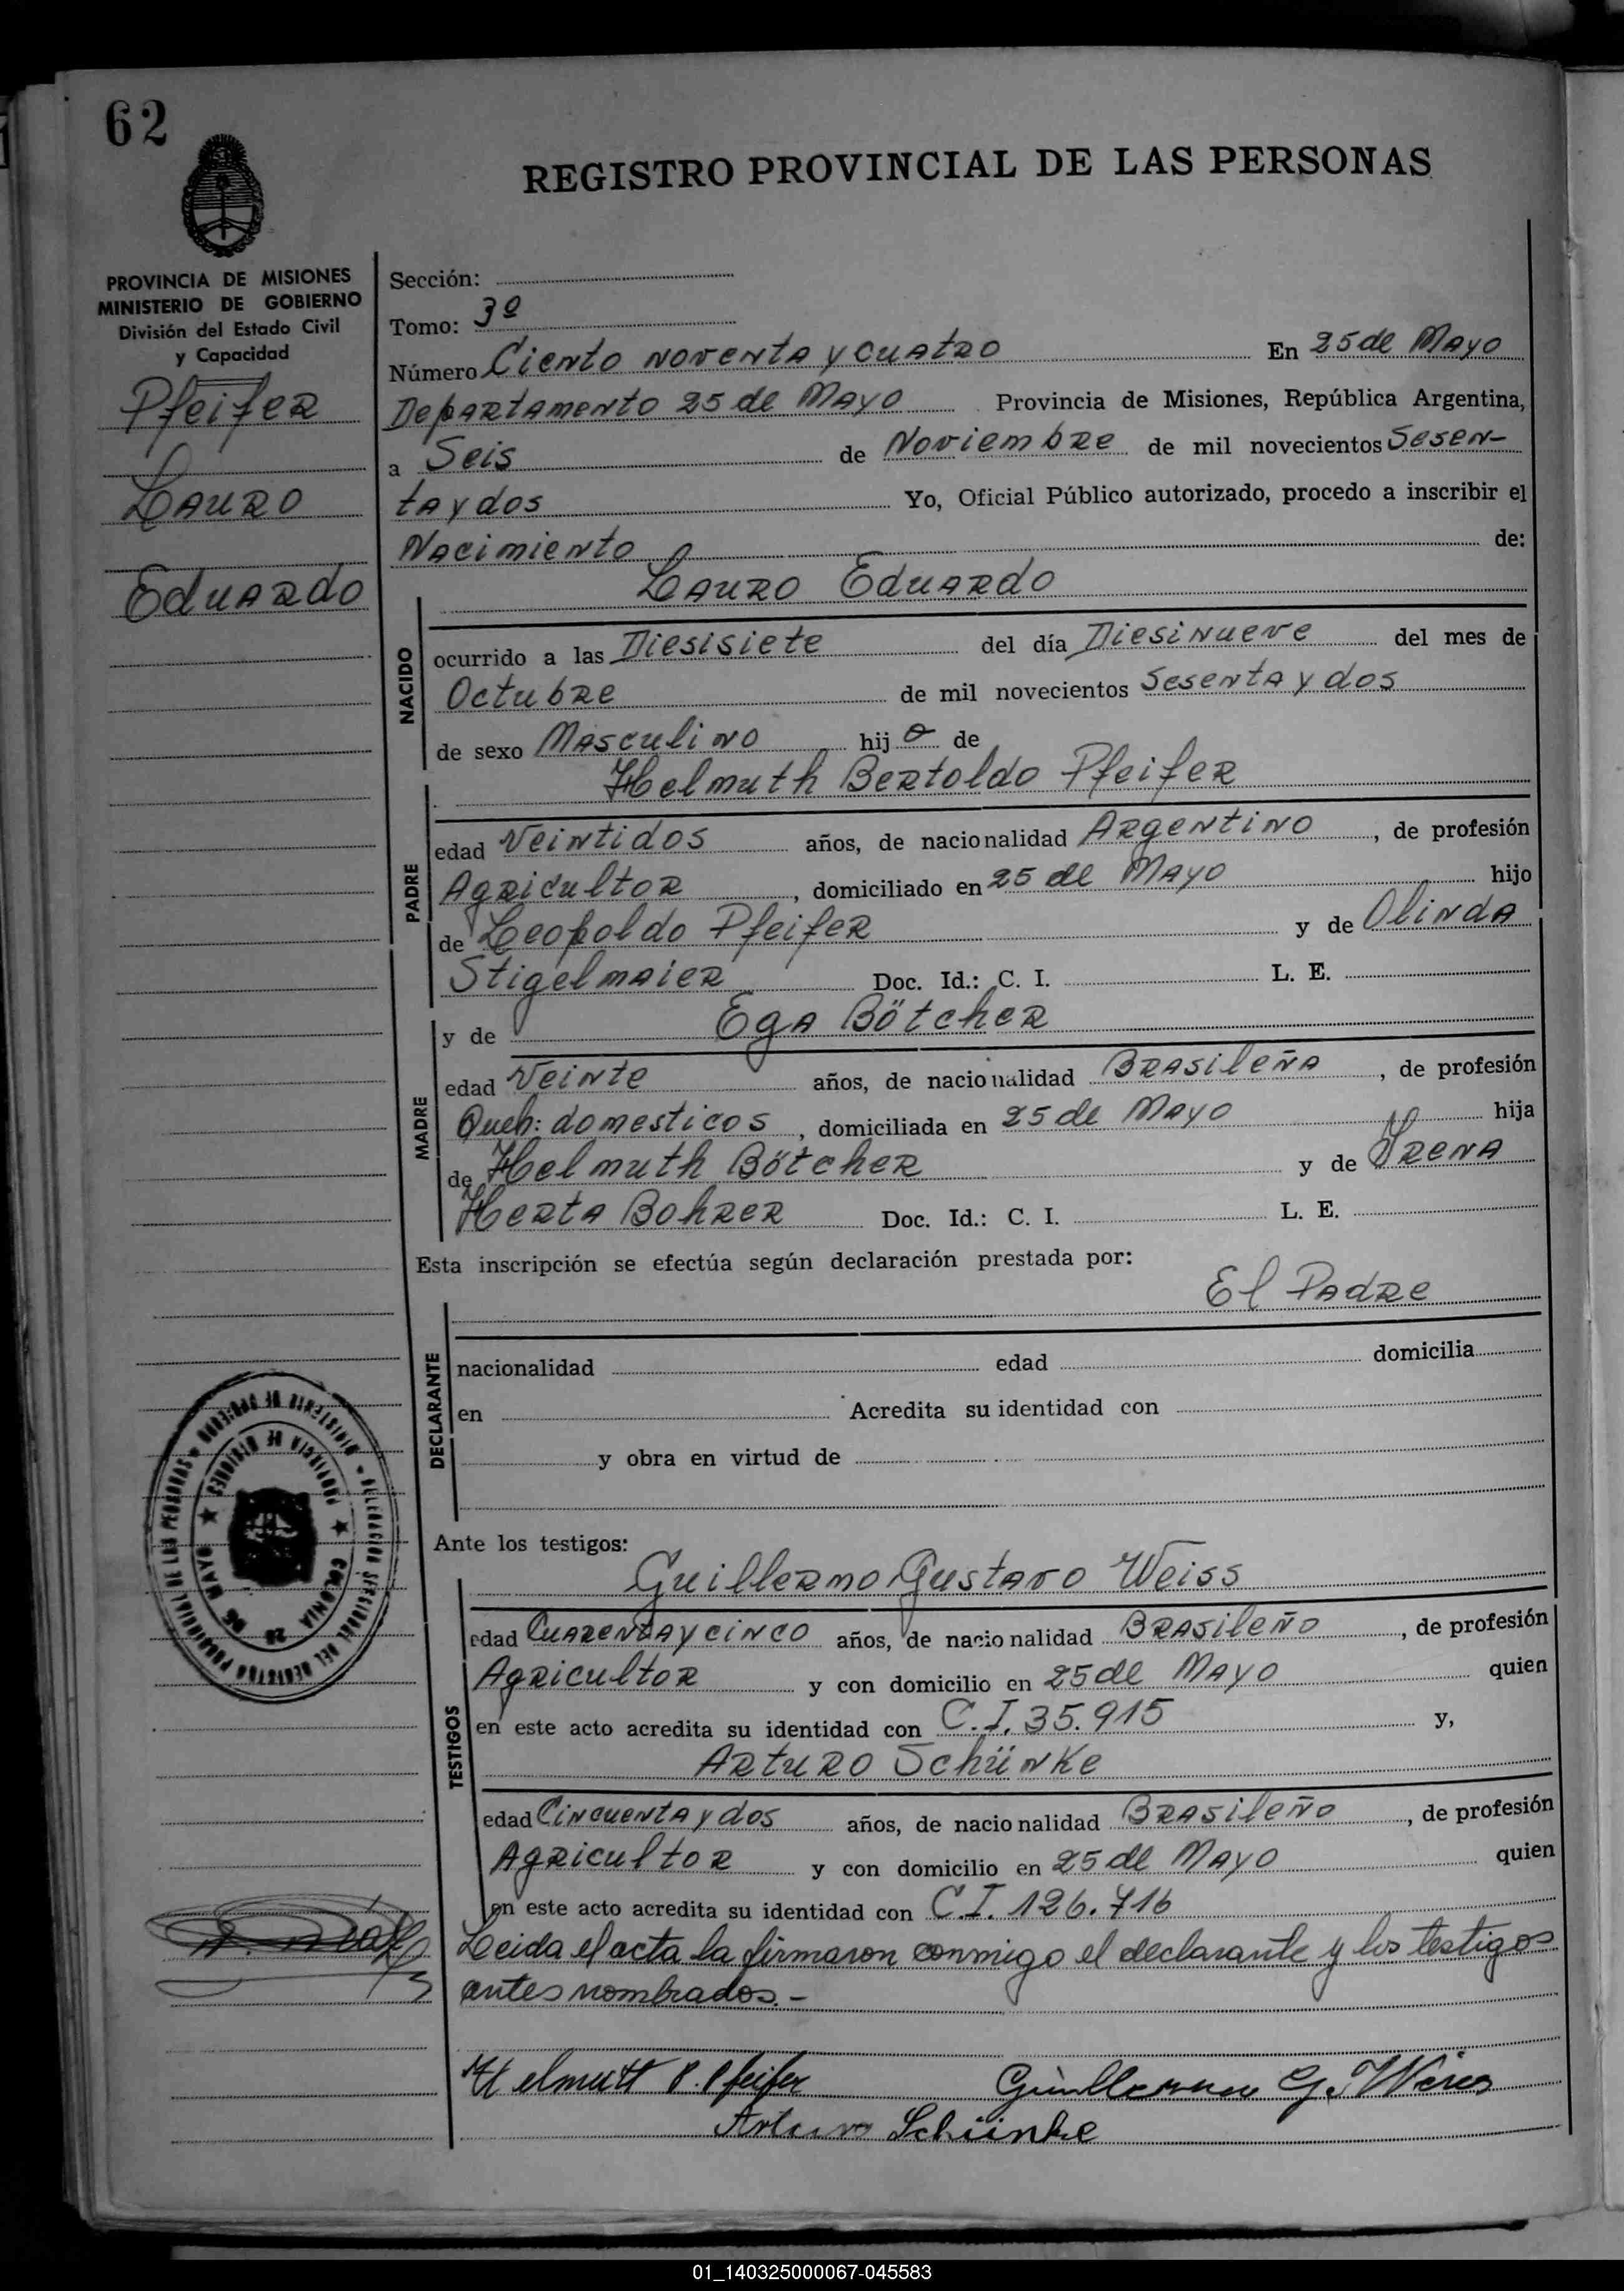 62
REGISTRO PROVINCIAL DE LAS PERSONAS
PROVINCIA DE MISIONES
MINISTERIO DE GOBIERNO
División del Estado Civil
y Capacidad
Pfeifer
Lauro
Eduardo
Sección:
Tomo: 3º
Número Ciento noventa y cuatro En 25 de Mayo
Departamento 25 de Mayo Provincia de Misiones, República Argentina,
a Seis de Noviembre de mil novecientos Sesen-
ta y dos Yo, Oficial Público autorizado, procedo a inscribir el
Nacimiento de:
Lauro Eduardo
NACIDO
ocurrido a las Diesisiete del día Diesinueve del mes de
Octubre de mil novecientos Sesenta y dos
de sexo Masculino hij o de
Helmuth Bertoldo Pfeifer
PADRE
edad Veintidos años, de nacionalidad Argentino, de profesión
Agricultor, domiciliado en 25 de Mayo hijo
de Leopoldo Pfeifer y de Olinda
Stigelmaier Doc. Id.: C. I. L. E.
y de Ega Bötcher
MADRE
edad Veinte años, de nacionalidad Brasileña, de profesión
Queh: domesticos, domiciliada en 25 de Mayo hija
de Helmuth Bötcher y de Yrena
Herta Bohrer Doc. Id.: C. I. L. E.
Esta inscripción se efectúa según declaración prestada por:
El Padre
DECLARANTE
nacionalidad edad domicilia
en Acredita su identidad con
y obra en virtud de
Ante los testigos:
Guillermo Gustavo Weiss
TESTIGOS
edad Cuarenta y cinco años, de nacionalidad Brasileño, de profesión
Agricultor y con domicilio en 25 de Mayo quien
en este acto acredita su identidad con C.I. 35.915 y,
Arturo Schünke
edad Cincuenta y dos años, de nacionalidad Brasileño, de profesión
Agricultor y con domicilio en 25 de Mayo quien
en este acto acredita su identidad con C.I. 126.716
Leida el acta la firmaron conmigo el declarante y los testigos
antes nombrados.-
Helmuth B. Pfeifer Guillermo G. Weiss
Arturo Schünke
PROVINCIA DE MISIONES
COLONIA 25 DE MAYO
01_140325000067-045583